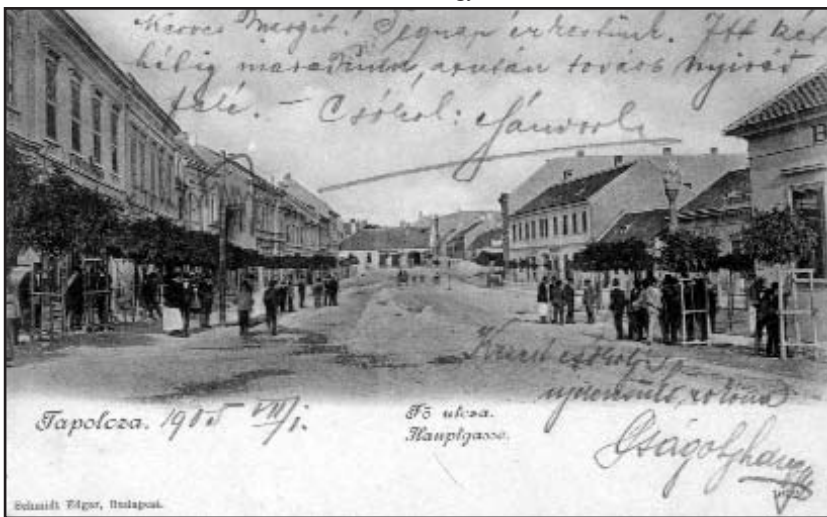 Kedves Margit! Tegnap érkeztünk. Itt két
hétig maradunk, azután tovább Nyirád
felé. – Csókol: Sándor
Kezeit csókolja
Tapolcza. 1905 VIII/1.
Fő utcza.
Hauptgasse.
Schmidt Edgar, Budapest.